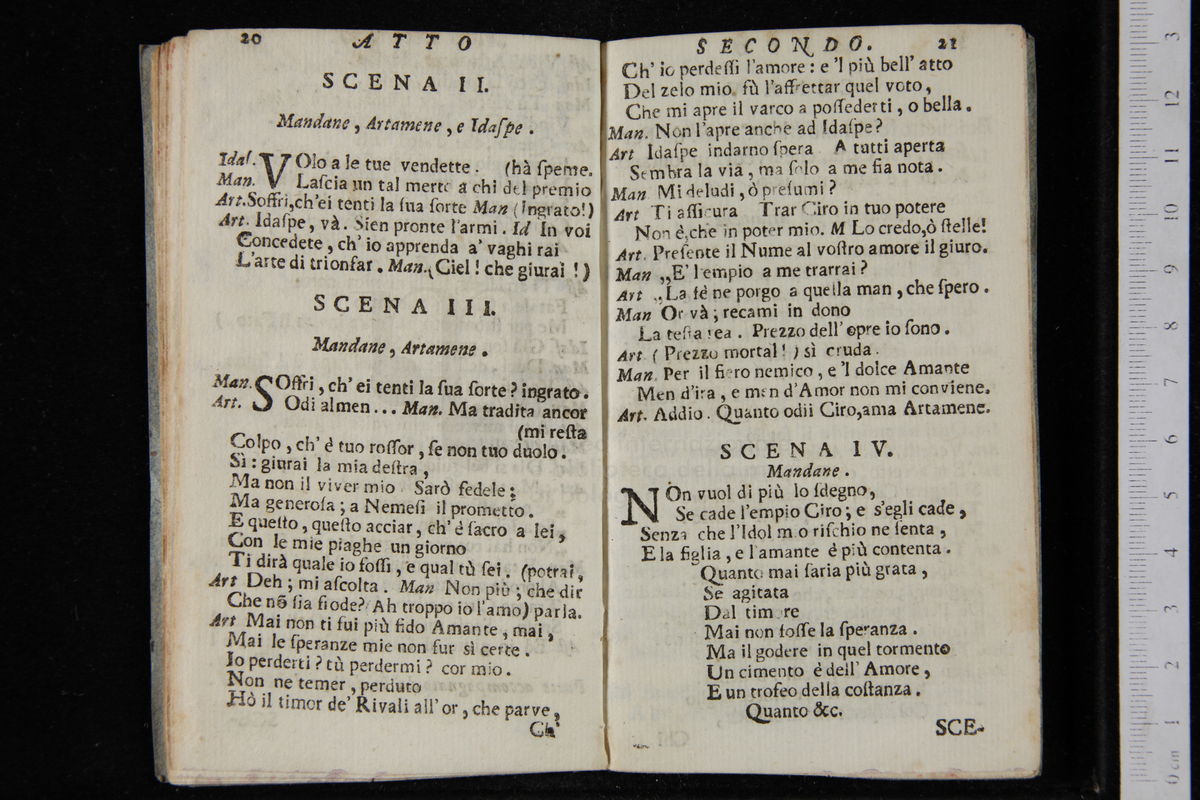 20 ATTO
SCENA II.
Mandane, Artamene, e Idaſpe.
Idaſ. VOlo a le tue vendette. (hà ſpeme.
Man. Laſcia un tal merto a chi del premio
Art. Soffri, ch'ei tenti la ſua ſorte Man (Ingrato!)
Art. Idaſpe, và. Sien pronte l'armi. Id In voi
Concedete, ch'io apprenda a' vaghi rai
L'arte di trionfar. Man. (Ciel! che giurai!)
SCENA III.
Mandane, Artamene.
Man. SOffri, ch'ei tenti la ſua ſorte? ingrato.
Art. Odi almen... Man. Ma tradita ancor
(mi reſta
Colpo, ch'è tuo roſſor, ſe non tuo duolo.
Sì: giurai la mia deſtra,
Ma non il viver mio. Sarò fedele;
Ma generoſa; a Nemeſi il prometto.
E queſto, queſto acciar, ch'é ſacro a lei,
Con le mie piaghe un giorno
Ti dirà quale io foſſi, e qual tù ſei. (potrai,
Art Deh; mi aſcolta. Man Non più; che dir
Che nõ ſia fiode? Ah troppo io l'amo) parla.
Art Mai non ti fui più fido Amante, mai,
Mai le ſperanze mie non fur sì certe.
Io perderti? tù perdermi? cor mio.
Non ne temer, perduto
Hò il timor de' Rivali all'or, che parve,
Ch'
SECONDO. 21
Ch'io perdeſſi l'amore: e 'l più bell'atto
Del zelo mio fù l'affrettar quel voto,
Che mi apre il varco a poſſederti, o bella.
Man. Non l'apre anche ad Idaſpe?
Art Idaſpe indarno ſpera A tutti aperta
Sembra la via, ma ſolo a me fia nota.
Man Mi deludi, ò preſumi?
Art Ti aſſicura Trar Ciro in tuo potere
Non è, che in poter mio. M Lo credo, ò ſtelle!
Art. Preſente il Nume al voſtro amore il giuro.
Man „E' l'empio a me trarrai?
Art „La fè ne porgo a quella man, che ſpero.
Man Or và; recami in dono
La teſta rea. Prezzo dell'opre io ſono.
Art. (Prezzo mortal!) sì cruda.
Man. Per il fiero nemico, e 'l dolce Amante
Men d'ira, e men d'Amor non mi conviene.
Art. Addio. Quanto odii Ciro, ama Artamene.
SCENA IV.
Mandane.
NOn vuol di più lo ſdegno,
Se cade l'empio Ciro; e s'egli cade,
Senza che l'Idol mio riſchio ne ſenta,
E la figlia, e l'amante é più contenta.
Quanto mai ſaria più grata,
Se agitata
Dal timore
Mai non foſſe la ſperanza.
Ma il godere in quel tormento
Un cimento é dell'Amore,
E un trofeo della coſtanza.
Quanto &c.
SCE-